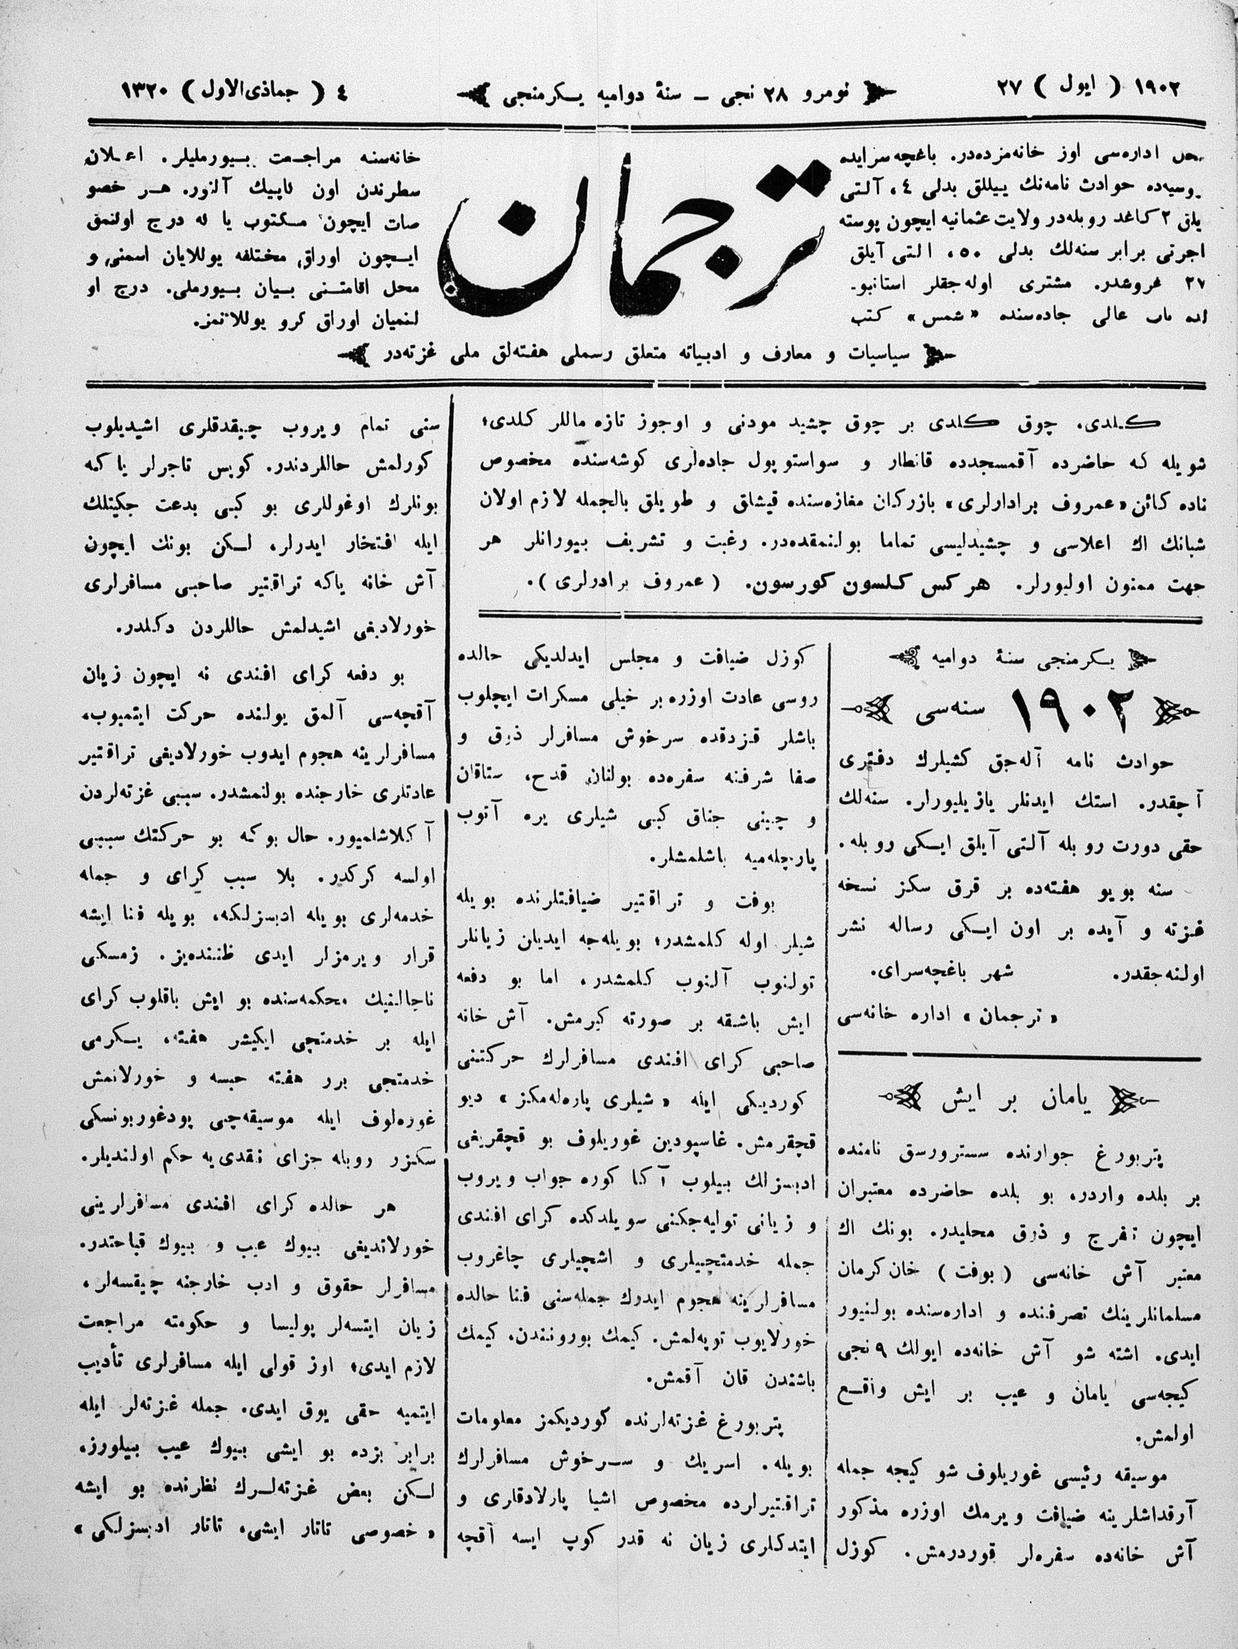 ١٩٠٢ ( ايول ) ٢٧
نومرو ٢٨ نجى ـ سنۀ دواميه يكرمنجى
٤ ( جماذى الاول ) ١٣٢٠
محل اداره‌سى اوز خانه‌مزده‌در. باغچه‌سرايده
روسيه‌ده حوادث نامه‌نك ييللق بدلى ٤، آلتى
يلق ٢ كاغد روبله‌در ولايت عثمانيه ايچون پوسته
اجرتى برابر سنه‌لك بدلى ٥٠، التى آيلق
٢٧ غروشدر. مشترى اوله‌جقلر استانبو‍
لده باب عالى جاده‌سنده «شمس» كتب
ترجمان
خانه‌سنه مراجعت بيورمليلر. اعلان
سطرندن اون قاپيك آلنور. هر خصو
صات ايچون مكتوب يا له درج اولنمق
ايچون اوراق مختلفه يوللايان اسمنى و
محل اقامتنى بيان بيورملى. درج او
لنميان اوراق كرو يوللانمز.
سياسيات و معارف و ادبياته متعلق رسملى هفته‌لق ملى غزته‌در
كلدى. چوق كلدى بر چوق چشيد مودنى و اوجوز تازه ماللر كلدى؛
شويله كه حاضرده آقمسجدده قانطار و سواستوپول جاده‌لرى كوشه‌سنده مخصوص
ناده كائن «عمروف برادارلرى» بازركان مغازه‌سنده قيشلق و طويلق بالجمله لازم اولان
شبانك اك اعلاسى و چشيدليسى تماما بولنمقده‌در. رغبت و تشريف بيورانلر هر
جهت ممنون اولورلر. هركس كلسون كورسون. (عمروف برادرلرى).
يكرمنجى سنۀ دواميه
١٩٠٢ سنه‌سى
حوادث نامه آله‌جق كشيلرك دفترى
آچقدر. استك ايدنلر يازيليورلر. سنه‌لك
حقى دورت روبله آلتى آيلق ايكى روبله.
سنه بويو هفته‌ده بر قرق سكز نسخه
غزته و آيده بر اون ايكى رساله نشر
اولنه‌جقدر. شهر باغچه‌سراى.
«ترجمان» اداره خانه‌سى
يامان بر ايش
پتربورغ جوارنده سسترورسق نامنده
بر بلده واردر، بو بلده حاضرده معتبران
ايچون تفرج و ذوق محليدر. بونك اك
معتبر آش خانه‌سى (بوفت) خان‌كرمان
مسلمانلرينك تصرفنده و اداره‌سنده بولنيور
ايدى. اشته شو آش خانه‌ده ايولك ٩ نجى
كيجه‌سى يامان و عيب بر ايش واقع
اولمش.
موسيقه رئيسى غوريلوف شو كيجه جمله
آرقداشلرينه ضيافت ويرمك اوزره مذكور
آش خانه‌ده سفره‌لر قوردرمش. كوزل
كوزل ضيافت و مجلس ايدلديكى حالده
روسى عادت اوزره بر خيلى مسكرات ايچلوب
باشلر قزدقده سرخوش مسافرلر ذوق و
صفا شرفنه سفره‌ده بولنان قدح، ستاقان
و چينى چناق كبى شيلرى يره آتوب
پارچه‌لميه باشلمشلر.
بوفت و تراقتير ضيافتلرنده بويله
شيلر اوله كلمشدر؛ بويله‌جه ايديان زيانلر
تولنوب آلنوب كلمشدر، اما بو دفعه
ايش باشقه بر صورته كيرمش. آش خانه
صاحبى كراى افندى مسافرلرك حركتنى
كورديكى ايله «شيلرى پاره‌له‌مكز» ديو
قچقرمش. غاسپودين غوريلوف بو قچقريغى
ادبسزلك بيلوب آكا كوره جواب ويروب
و زيانى توليه‌جكنى سويلدكده كراى افندى
جمله خدمتچيلرى و اشچيلرى چاغروب
مسافرلرينه هجوم ايدرك جمله‌سنى فنا حالده
خورلايوب تويه‌لمش. كيمك بوروندن، كيمك
باشندن قان آقمش.
پتربورغ غزته‌لرنده كورديكمز معلومات
بويله. اسريك و سرخوش مسافرلرك
تراقتيرلرده مخصوص اشيا پارلادقلرى و
ايتدكلرى زيان نه قدر كوپ ايسه آقچه
سنى تمام ويروب چيقدقلرى اشيديلوب
كورلمش حاللردندر. كوپس تاجرلر ياكه
بونلرك اوغوللرى بو كبى بدعت جكيتلك
ايله افتخار ايدرلر، لكن بونك ايچون
آش خانه ياكه تراقتير صاحبى مسافرلرى
خورلاديغى اشيدلمش حاللردن دكلدر.
بو دفعه كراى افندى نه ايچون زيان
آقچه‌سى آلمق يولنده حركت ايتميوب،
مسافرلرينه هجوم ايدوب خورلاديغى تراقتير
عادتلرى خارجنده بولنمشدر. سببى غزته‌لردن
آكلاشلميور. حال بوكه بو حركتك سببى
اولسه كركدر. بلا سبب كراى و جمله
خدمه‌لرى بويله ادبسزلكه، بويله فنا ايشه
قرار ويرمزلر ايدى ظننده‌يز. زمسكى
ناچالنيك محكمه‌سنده بو ايش باقلوب كراى
ايله بر خدمتچى ايكيشر هفته، يكرمى
خدمتچى برر هفته حبسه و خورلانمش
غوره‌لوف ايله موسيقه‌چى پودغوربونسكى
سكزر روبله جزاى نقدى‌يه حكم اولنديلر.
هر حالده كراى افندى مسافرلرينى
خورلانديغى بيوك عيب و بيوك قباحتدر.
مسافرلر حقوق و ادب خارجنه چيقسه‌لر،
زيان ايتسه‌لر پوليسا و حكومته مراجعت
لازم ايدى؛ اوز قولى ايله مسافرلرى تأديب
ايتميه حقى يوق ايدى. جمله غزته‌لر ايله
برابر بزده بو ايشى بيوك عيب بيلورز.
لكن بعض غزته‌لرك نظرنده بو ايشه
«خصوصى تاتار ايشى، تاتار ادبسزلكى»